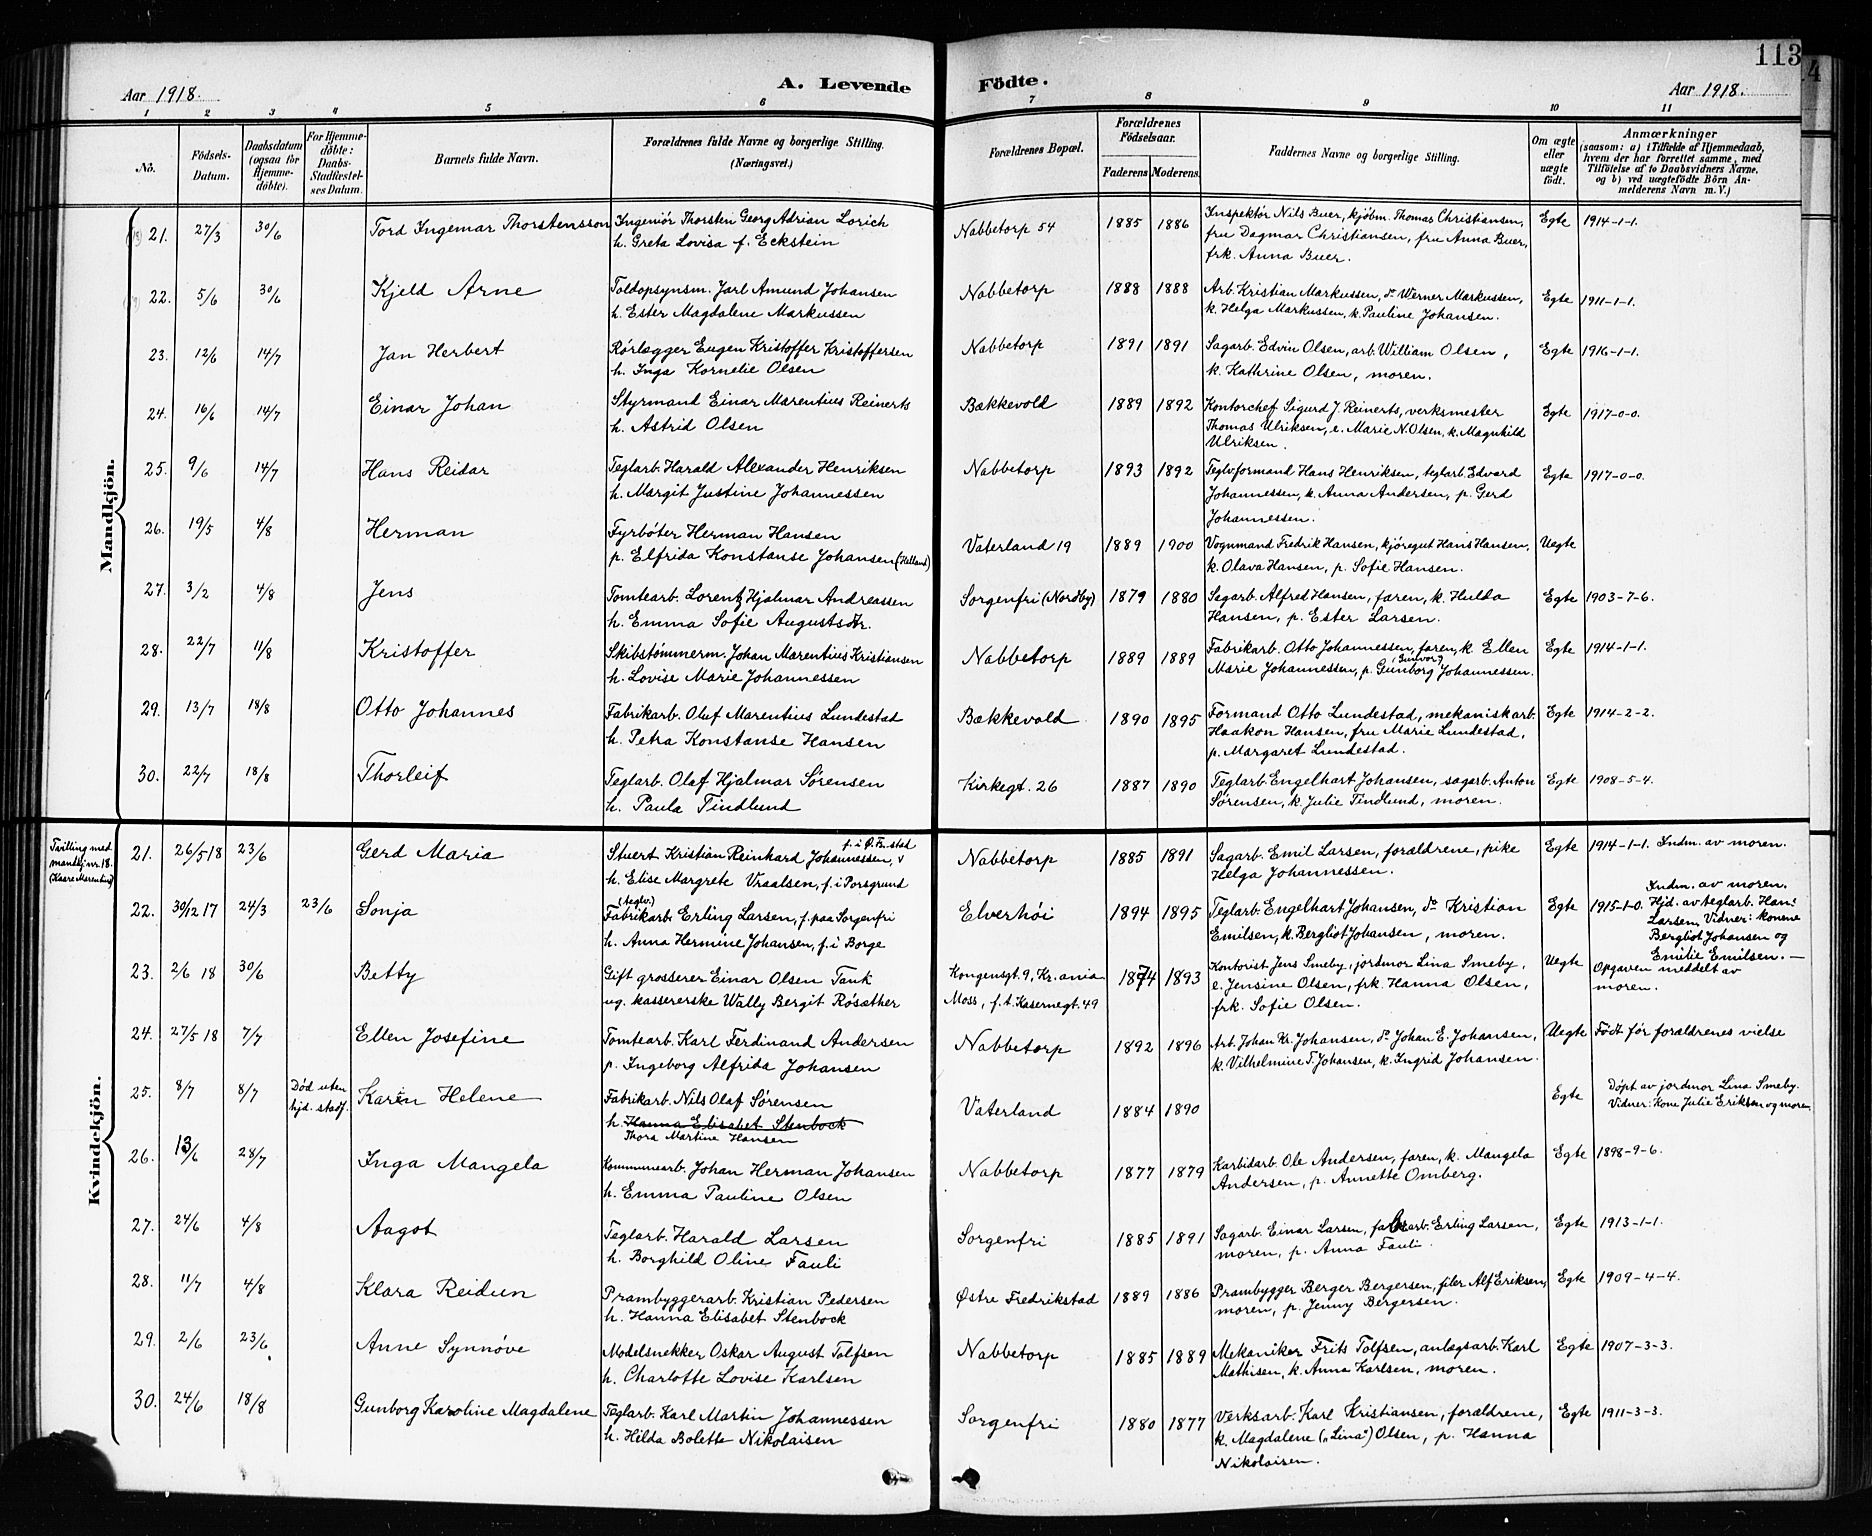 113
4
Aar 1918.
A. Levende
Födte.
Aar 1918.
1 2 3 4 5 6 7 8 9 10 11
No.
Födsels-Datum.
Daabsdatum (ogsaa for Hjemme-döbte).
For Hjemme-döbte: Daabs-Stadfæstel-ses Datum.
Barnets fulde Navn.
Forældrenes fulde Navne og borgerlige Stilling. (Næringsvei.)
Forældrenes Bopæl.
Forældrenes Födselsaar.
Faderens
Moderens
Faddernes Navne og borgerlige Stilling.
Om ægte eller uægte födt.
Anmærkninger
(saasom: a) i Tilfælde af Hjemmedaab, hvem der har forrettet samme, med Tilföielse af to Daabsvidners Navne, og b) ved uægtefödte Börn Anmelderens Navn m. V.)
Mandkjön.
21. 27/3 30/6 Tord Ingemar Thorstensson Ingeniør Thorsten Georg Adrian Lorich Nabbetorp 54 1885 1886 Inspektør Nils Buer, kjøbm. Thomas Christiansen, Egte 1914-1-1.
h. Greta Lovisa f. Eckstein fru Dagmar Christiansen, fru Anna Buer,
frk. Anna Buer.
22. 5/6 30/6 Kjeld Arne Toldopsynsm. Jarl Amund Johansen Nabbetorp 1888 1888 Arb. Kristian Markussen, do Werner Markussen, Egte 1911-1-1.
h. Ester Magdalene Markussen k. Helga Markussen, k. Pauline Johansen.
23. 12/6 14/7 Jan Herbert Rørlægger Eugen Kristoffer Kristoffersen Nabbetorp 1891 1891 Sagarb. Edvin Olsen, arb. William Olsen, Egte 1916-1-1.
h. Inga Kornelie Olsen k. Kathrine Olsen, moren.
24. 16/6 14/7 Einar Johan Styrmand Einar Marentius Reinerts Bækkevold 1889 1892 Kontorchef Sigurd J. Reinerts, verksmester Egte 1917-0-0.
h. Astrid Olsen Thomas Ulriksen, e. Marie N. Olsen, k. Magnhild
Ulriksen.
25. 9/6 14/7 Hans Reidar Teglarb. Harald Alexander Henriksen Nabbetorp 1893 1892 Teglvformand Hans Henriksen, teglarb. Edvard Egte 1917-0-0.
h. Margit Justine Johannessen Johannessen, k. Anna Andersen, p. Gerd
Johannessen.
26. 19/5 4/8 Herman Fyrbøter Herman Hansen Vaterland 19 1889 1900 Vognmand Fredrik Hansen, kjøregut Hans Hansen, Uegte
p. Elfrida Konstanse Johansen (Helland) k. Olava Hansen, p. Sofie Hansen.
27. 3/2 4/8 Jens Tomtearb. Lorentz Hjalmar Andreassen Sorgenfri (Nordby) 1879 1880 Sagarb. Alfred Hansen, faren, k. Hulda Egte 1903-7-6.
h. Emma Sofie Augustsdtr. Hansen, p. Ester Larsen.
28. 22/7 11/8 Kristoffer Skibstømmerm. Johan Marentius Kristiansen Nabbetorp 1889 1889 Fabrikarb. Otto Johannessen, faren, k. Ellen Egte 1914-1-1.
h. Lovise Marie Johannessen Marie Johannessen, p. Gunborg (Gunvor) Johannessen.
29. 13/7 18/8 Otto Johannes Fabrikarb. Oluf Marentius Lundestad Bækkevold 1890 1895 Formand Otto Lundestad, mekanisk arb. Egte 1914-2-2.
h. Petra Konstanse Hansen Haakon Hansen, fru Marie Lundestad,
p. Margaret Lundestad.
30. 22/7 18/8 Thorleif Teglarb. Olaf Hjalmar Sørensen Kirkegt. 26 1887 1890 Teglarb. Engelhart Johansen, sagarb. Anton Egte 1908-5-4.
h. Paula Tindlund Sørensen, k. Julie Tindlund, moren.
Kvindekjön.
Tvilling med
mandkj. nr. 18.
(Kaare Marentius)
21. 26/5 18 23/6 Gerd Maria Stuert Kristian Reinhard Johannessen, f. i Ø. Fr.stad Nabbetorp 1885 1891 Sagarb. Emil Larsen, forældrene, pike Egte 1914-1-1. Indm. av moren.
h. Elise Margrete Vraalsen, f. i Porsgrund Helga Johannessen.
22. 30/12 17 24/3 23/6 Sonja Fabrikarb. (teglv.) Erling Larsen, f. paa Sorgenfri Elverhøi 1894 1895 Teglarb. Engelhart Johansen, do Kristian Egte 1915-1-0. Indm. av moren.
h. Anna Hermine Johansen, f. i Borge Emilsen, k. Bergliot Johansen, moren. Hjd. av teglarb. Hans
Larsen, Vidner: konene
Bergliot Johansen og
Emilie Emilsen. —
23. 2/6 18 30/6 Betty Gift grosserer Einar Olsen Tank Kongensgt. 9, Kr.ania 1874 1893 Kontorist Jens Smeby, jordmor Lina Smeby, Uegte Opgaven meddelt av
ug. kassererske Wally Bergit Røsæther Moss, f.t. Kasernegt. 49 e. Jensine Olsen, frk. Hanna Olsen, moren.
frk. Sofie Olsen.
24. 27/5 18 7/7 Ellen Josefine Tomtearb. Karl Ferdinand Andersen Nabbetorp 1892 1896 Arb. Johan Kr. Johansen, do Johan E. Johansen, Uegte Født før forældrenes vielse
p. Ingeborg Alfrida Johansen k. Vilhelmine T. Johansen, k. Ingrid Johansen.
25. 8/7 8/7 Død uten Karin Helene Fabrikarb. Nils Olaf Sørensen Vaterland 1884 1890 Egte Døpt av jordmor Lina Smeby.
hjd. stadf. h. Hanna Elisabet Stenbock Vidner: Kone Julie Eriksen og moren
Thora Martine Hansen
26. 13/6 28/7 Inga Mangela Kommunearb. Johan Herman Johansen Nabbetorp 1877 1879 Karbidarb. Ole Andersen, faren, k. Mangela Egte 1898-9-6.
h. Emma Pauline Olsen Andersen, p. Annette Omberg.
27. 24/6 4/8 Aagot Teglarb. Harald Larsen Sorgenfri 1885 1891 Sagarb. Einar Larsen, fabrarb. Erling Larsen, Egte 1913-1-1.
h. Borghild Oline Fauli moren, p. Anna Fauli.
28. 11/7 4/8 Klara Reidun Prambyggerarb. Kristian Pedersen Østre Fredrikstad 1889 1886 Prambygger Berger Bergersen, filer Alf Eriksen, Egte 1909-4-4.
h. Hanna Elisabet Stenbock moren, p. Jenny Bergersen.
29. 2/6 23/6 Anne Synnøve Modelsnekker Oskar August Tolfsen Nabbetorp 1885 1889 Mekaniker Frits Tolfsen, anlægsarb. Karl Egte 1907-3-3.
h. Charlotte Lovise Karlsen Mathisen, k. Anna Karlsen, moren.
30. 24/6 18/8 Gunborg Karoline Magdalene Teglarb. Karl Martin Johannessen Sorgenfri 1880 1877 Verksarb. Karl Kristiansen, forældrene, Egte 1911-3-3.
h. Hilda Bolette Nikolaisen k. Magdalene („Lina") Olsen, p. Hanna
Nikolaisen.